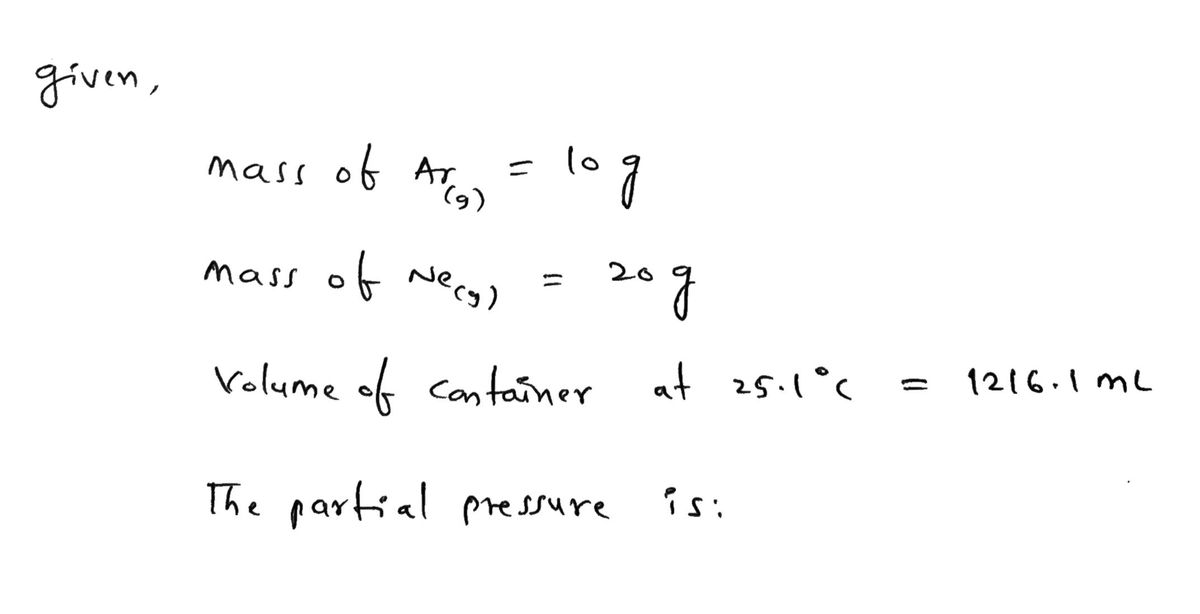 given,
mass of Ar(g) = 10 g
mass of Ne(g) = 20 g
Volume of container at 25.1°C = 1216.1 mL
The partial pressure is: